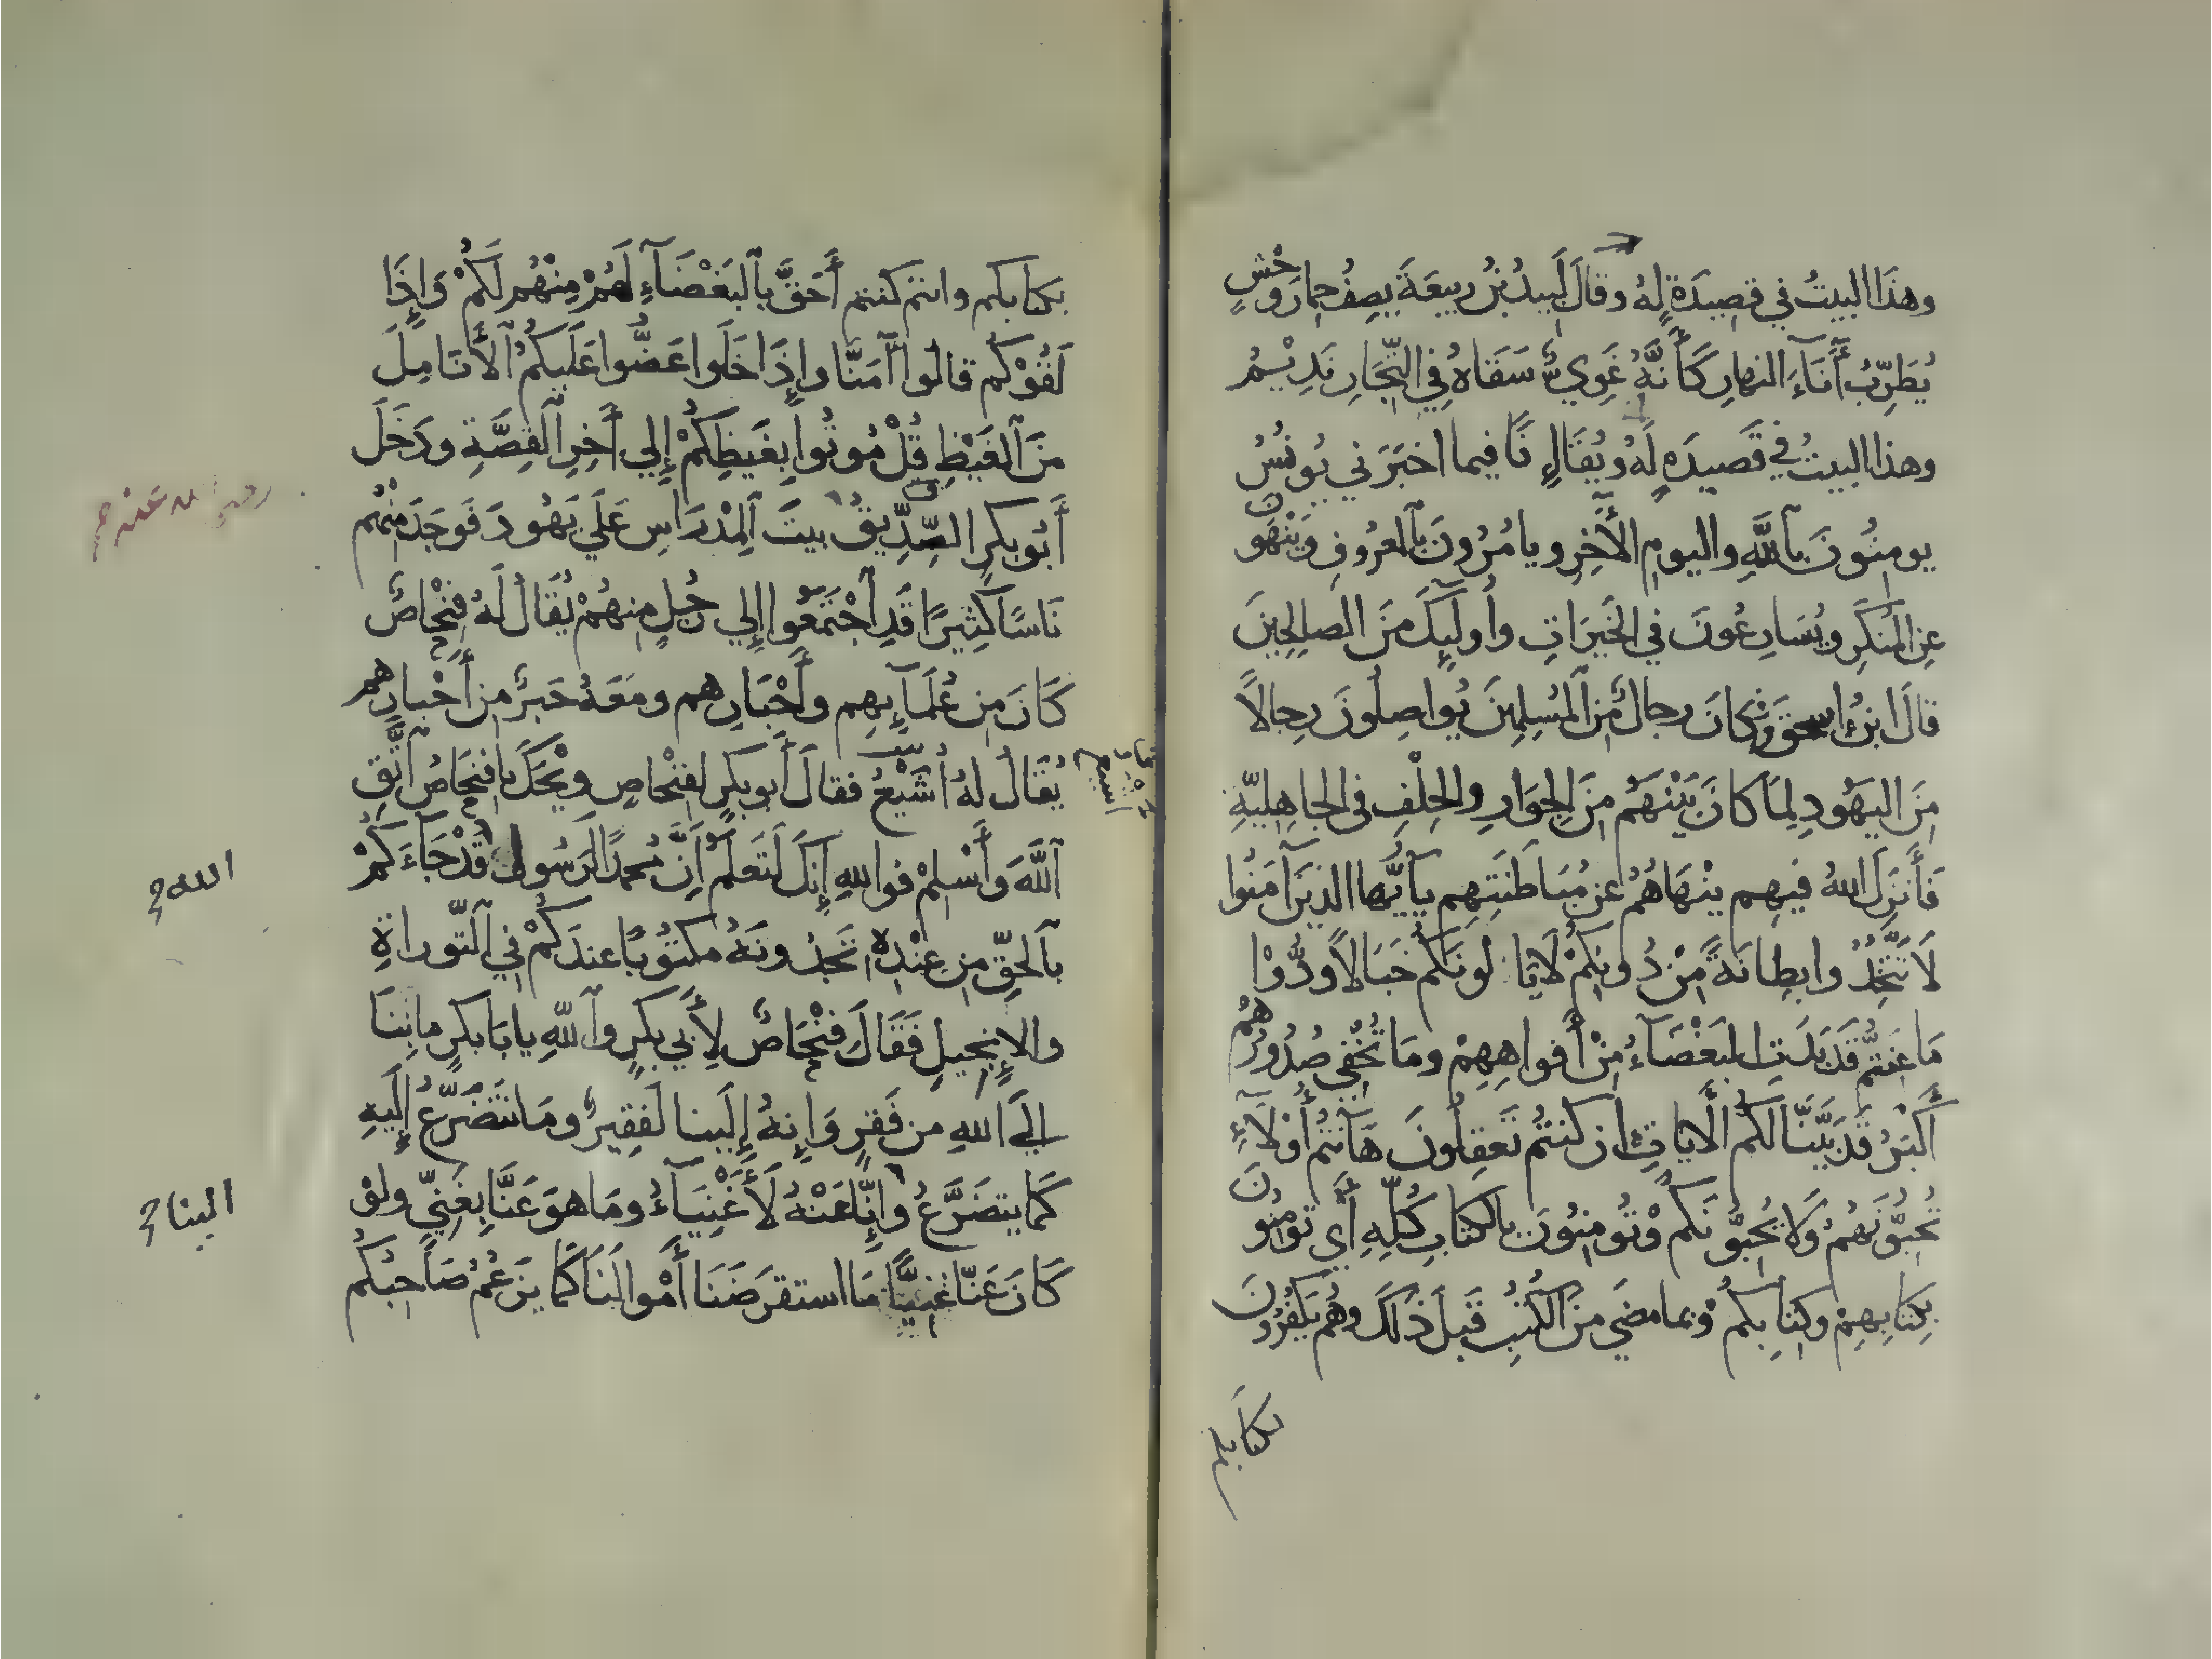 وهذا البيتُ في قصيدَةٍ لهُ وقالَ لَبيدُ بنُ ربيعَةَ يصِفُ حمارَ وحْشٍ
يُطَرِّبُ أَنَآءَ النهارِ كَأَنَّهُ غَوِيٌّ سَقَاهُ فِي التِّجَارِ نَدِيْمُ
وهذا البيتُ في قَصيدَةٍ لَهُ ويُقَالِ نَا فيما اخبَرَني يُونُسُ
يومِنُونَ بٱللَّهِ واليومِ الأَخِرِ ويامُرُونَ بٱلمعرُوفِ وَيَنْهَوْنَ
عنِ المُنكَرِ ويُسَارِعُونَ في الخَيرَاتِ وأُولَٓيِكَ مِنَ الصلِحِينَ
قالَ ابنُ اسحٰقَ وَكانَ رجالٌ مِنَ ٱلمُسلِمِينَ يُواصِلُونَ رِجالًا
مِنَ اليَهُودِ لِمَا كانَ بَيْنَهُم مِنَ الجِوَارِ والحِلْفِ في الجاهِليّةِ
فَأَنزَلَ اللهُ فيهِم ينْهَاهُمْ عن مُبَاطَنَتِهِم يَآيُّها الذينَ آمَنُوا
لَا تَتَّخِذُوا بِطانَةً مِنْ دُونِكُمْ لَا يَالُونَكُم خَبَالًا وَدُّوْا
مَا عَنِتُّم قَدْ بَدَتِ البَغْضَآءُ مِنْ أَفواهِهِمْ ومَا تُخْفِي صُدُورُهُم
أَكْبَرُ قَدْ بَيَّنَّا لَكُمُ الْأيَاتِ ان كنتُم تَعقِلُونَ هَآنتُمْ أُوْلَآءِ
تُحِبُّونَهُمْ وَلَا يُحِبُّونَكُم وْتُومِنُونَ بالكتابِ كُلِّهِ أَي تومِنُونَ
بِكِتَابِهِمْ وكِتابِكُم وبما مضَي مِنَ الكُتُبِ قَبلَ ذَلكَ وهُم يَكفُرُونَ
بكتابكم
بكتابكم وانتم كنتم أَحَقَّ بٱلبَغْضَآءِ لَهُمْ مِنْهُم لَكُمْ وَإِذَا
لَقُوْكُم قالوا آمَنَّا وإِذَا خَلَوا عَضُّوا عَلَيكُمُ ٱلأَنَامِلَ
مِنَ ٱلغَيْظِ قُلْ مُوتُوا بِغَيظِكُمْ إِلي أَخِرِ ٱلقِصَّةِ ودَخَلَ
أَبُو بكرٍ الصِّدِّيقُ بيتَ ٱلمِدْرَاسِ عَلَي يَهُودَ فَوجَدَ مِنْهُم
رضي الله عنه صح
نَاسًا كَثِيرًا قَدِ ٱجْتَمَعُوا إِلي رجُلٍ مِنهُمْ يُقَالُ لَهُ فِنْحَاصٌ
كَانَ مِن عُلَمَآيِهِم وأَحْبَارِهم ومَعَهُ حَبرٌ مِن أَحْبارِهم
يُقَالُ لهُ أَشْيَعُ فقالَ أَبو بكرٍ لفِنْحاصٍ ويْحَكَ يا فِنحَاصُ ٱتَّقِ
ٱللَّهَ وَأَسْلِمْ فواللهِ إِنكَ لَتَعلَمُ أَنَّ مُحمدًا لرَسُولُ قَدْ جَاءَكُمْ
الله صح
بٱلحَقِّ مِن عِنْدِهِ تَجِدُونَهُ مكتُوبًا عندَكُمْ في ٱلتَّوراةِ
والإِنجيلِ فَقَالَ فِنْحَاصٌ لِأَبي بكرٍ وٱللّهِ يا بَا بكرٍ مابِنَا
إلَي اللهِ من فَقرٍ وَإِنهُ إِلَينا لَفقِيرٌ ومَا نتَضَرَّعُ إِلَيهِ
كَما يتضَرَّعُ وإِنَّا عَنْهُ لَأَغْنِيَآءُ ومَا هوَ عَنَّا بِغَنِيٍّ ولوْ
الينا صح
كَانَ عَنّا غنِيًّا مَا استقرَضَنَا أَمْوالَنَا كَما يَزعُمُ صَاحِبُكُم